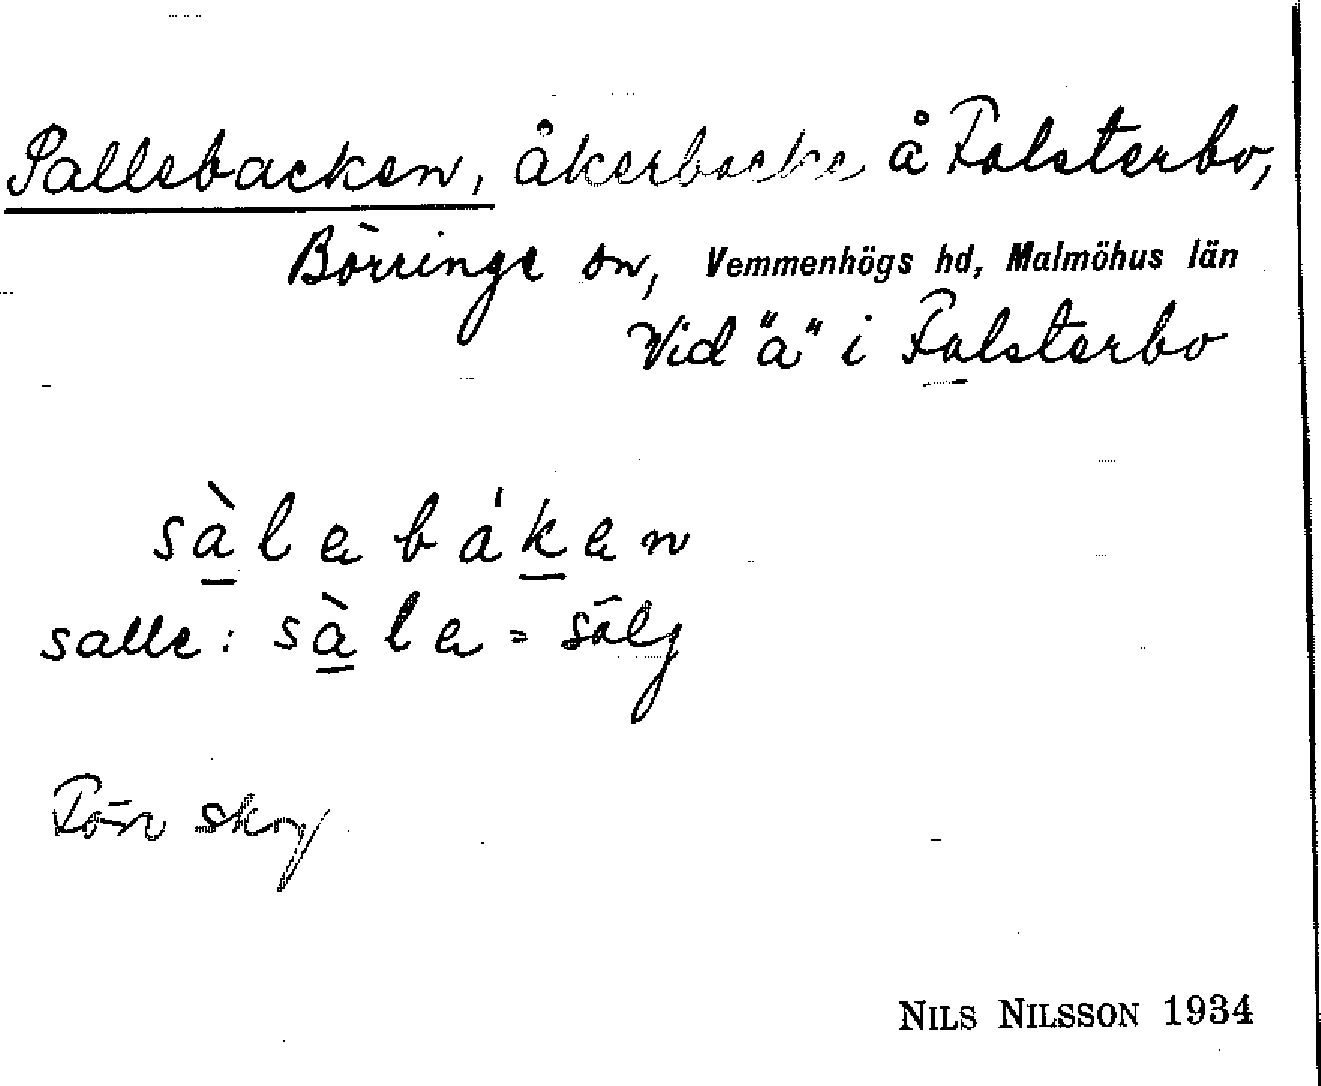 Sallebacken, åkerbacke å Falsterbo,
Börringe sn, Vemmenhögs hd, Malmöhus län
Vid "a" i Falsterbo
sàlebáken
salle: sàle = sälg
Förr skog
NILS NILSSON 1934